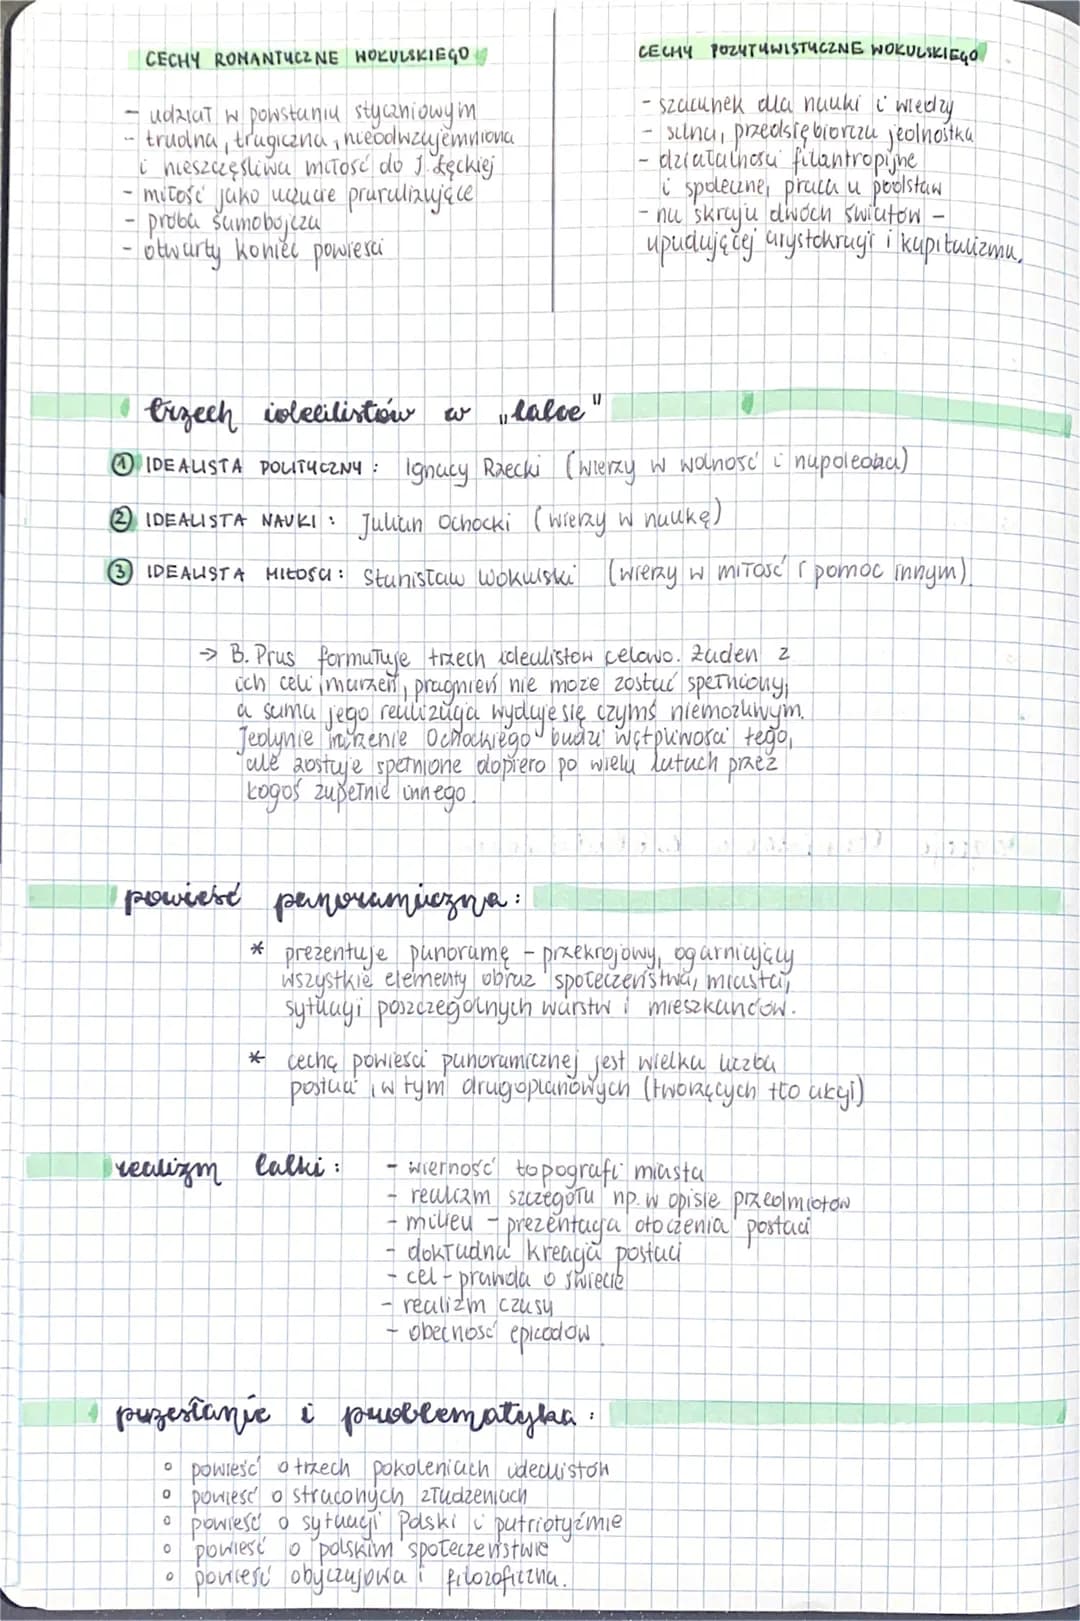 CECHY ROMANTYCZNE WOKULSKIEGO
- udział w powstaniu styczniowym
- trudna, tragiczna, nieodwzajemniona
i nieszczęśliwa miłość do J. Łęckiej
- miłość jako uczucie paraliżujące
- próba samobójcza
- otwarty koniec powieści
CECHY POZYTYWISTYCZNE WOKULSKIEGO
- szacunek dla nauki i wiedzy
- silna, przedsiębiorcza jednostka
- działalności filantropijne
i społeczne, praca u podstaw
- na skraju dwóch światów -
upadającej arystokracji i kapitalizmu.
trzech idealistów w "lalce"
1 IDEALISTA POLITYCZNY: Ignacy Rzecki (wierzy w wolność i napoleona)
2 IDEALISTA NAUKI: Julian Ochocki (wierzy w naukę)
3 IDEALISTA MIŁOŚCI: Stanisław Wokulski (wierzy w miłość i pomoc innym)
→ B. Prus formułuje trzech idealistów celowo. Żaden z
ich celi, marzeń, pragnień nie może zostać spełniony,
a sama jego realizacja wydaje się czymś niemożliwym.
Jedynie marzenie Ochockiego budzi wątpliwości tego,
ale zostaje spełnione dopiero po wielu latach przez
kogoś zupełnie innego.
powieść panoramiczna:
* prezentuje panoramę - przekrojowy, ogarniający
wszystkie elementy obraz społeczeństwa, miasta,
sytuacji poszczególnych warstw i mieszkańców.
* cechą powieści panoramicznej jest wielka liczba
postaci, w tym drugoplanowych (tworzących tło akcji)
realizm lalki:
- wierność topografi miasta
- realizm szczegółu np. w opisie przedmiotów
- milieu - prezentacja otoczenia postaci
- dokładna kreacja postaci
- cel - prawda o świecie
- realizm czasu
- obecność epizodów.
przesłanie i problematyka:
◦ powieść o trzech pokoleniach idealistów
◦ powieść o straconych złudzeniach
◦ powieść o sytuacji Polski i patriotyźmie
◦ powieść o polskim społeczeństwie
◦ powieść obyczajowa i filozoficzna.